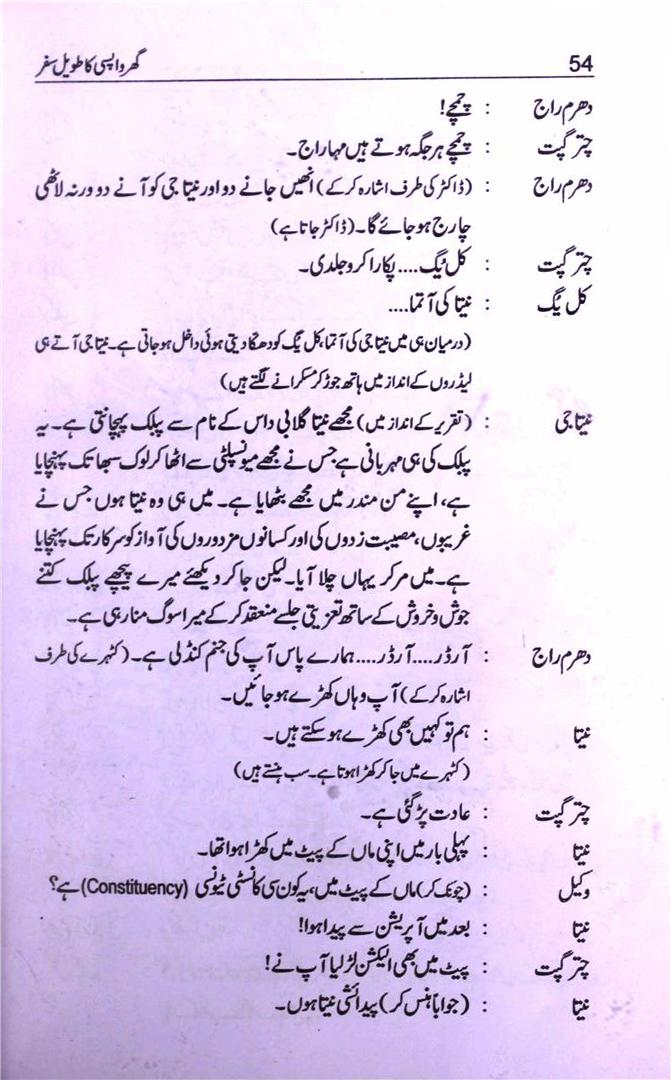 54 گھر واپسی کا طویل سفر
دھرم راج : چمچے!
چتر گپت : چمچے ہر جگہ ہوتے ہیں مہاراج۔
دھرم راج : (ڈاکٹر کی طرف اشارہ کرکے) انھیں جانے دو اور نیتا جی کو آنے دو ورنہ لاٹھی
چارج ہو جائے گا۔ (ڈاکٹر جاتا ہے)
چتر گپت : کل یُگ.... پکارا کرو جلدی۔
کل یگ : نیتا کی آتما....
(درمیان ہی میں نیتا جی کی آتما، کل یگ کو دھکا دیتی ہوئی داخل ہو جاتی ہے۔ نیتا جی آتے ہی
لیڈروں کے انداز میں ہاتھ جوڑ کر مسکرانے لگتے ہیں)
نیتا جی : (تقریر کے انداز میں) مجھے نیتا گلابی داس کے نام سے پبلک پہچانتی ہے۔ یہ
پبلک کی ہی مہربانی ہے جس نے مجھے میونسپلٹی سے اٹھا کر لوک سبھا تک پہنچایا
ہے، اپنے من مندر میں مجھے بٹھایا ہے۔ میں ہی وہ نیتا ہوں جس نے
غریبوں، مصیبت زدوں کی اور کسانوں مزدوروں کی آواز کو سرکار تک پہنچایا
ہے۔ میں مر کر یہاں چلا آیا۔ لیکن جا کر دیکھئے میرے پیچھے پبلک کتنے
جوش و خروش کے ساتھ تعزیتی جلسے منعقد کر کے میرا سوگ منا رہی ہے۔
دھرم راج : آرڈر.... آرڈر.... ہمارے پاس آپ کی جنم کنڈلی ہے۔ (کٹہرے کی طرف
اشارہ کرکے) آپ وہاں کھڑے ہو جائیں۔
نیتا : ہم تو کہیں بھی کھڑے ہو سکتے ہیں۔
(کٹہرے میں جا کر کھڑا ہوتا ہے۔ سب ہنستے ہیں)
چتر گپت : عادت پڑ گئی ہے۔
نیتا : پہلی بار میں اپنی ماں کے پیٹ میں کھڑا ہوا تھا۔
وکیل : (چونک کر) ماں کے پیٹ میں، یہ کون سی کانسٹی ٹیونسی (Constituency) ہے؟
نیتا : بعد میں آپریشن سے پیدا ہوا!
چتر گپت : پیٹ میں بھی الیکشن لڑ لیا آپ نے!
نیتا : (جواباً ہنس کر) پیدائشی نیتا ہوں۔